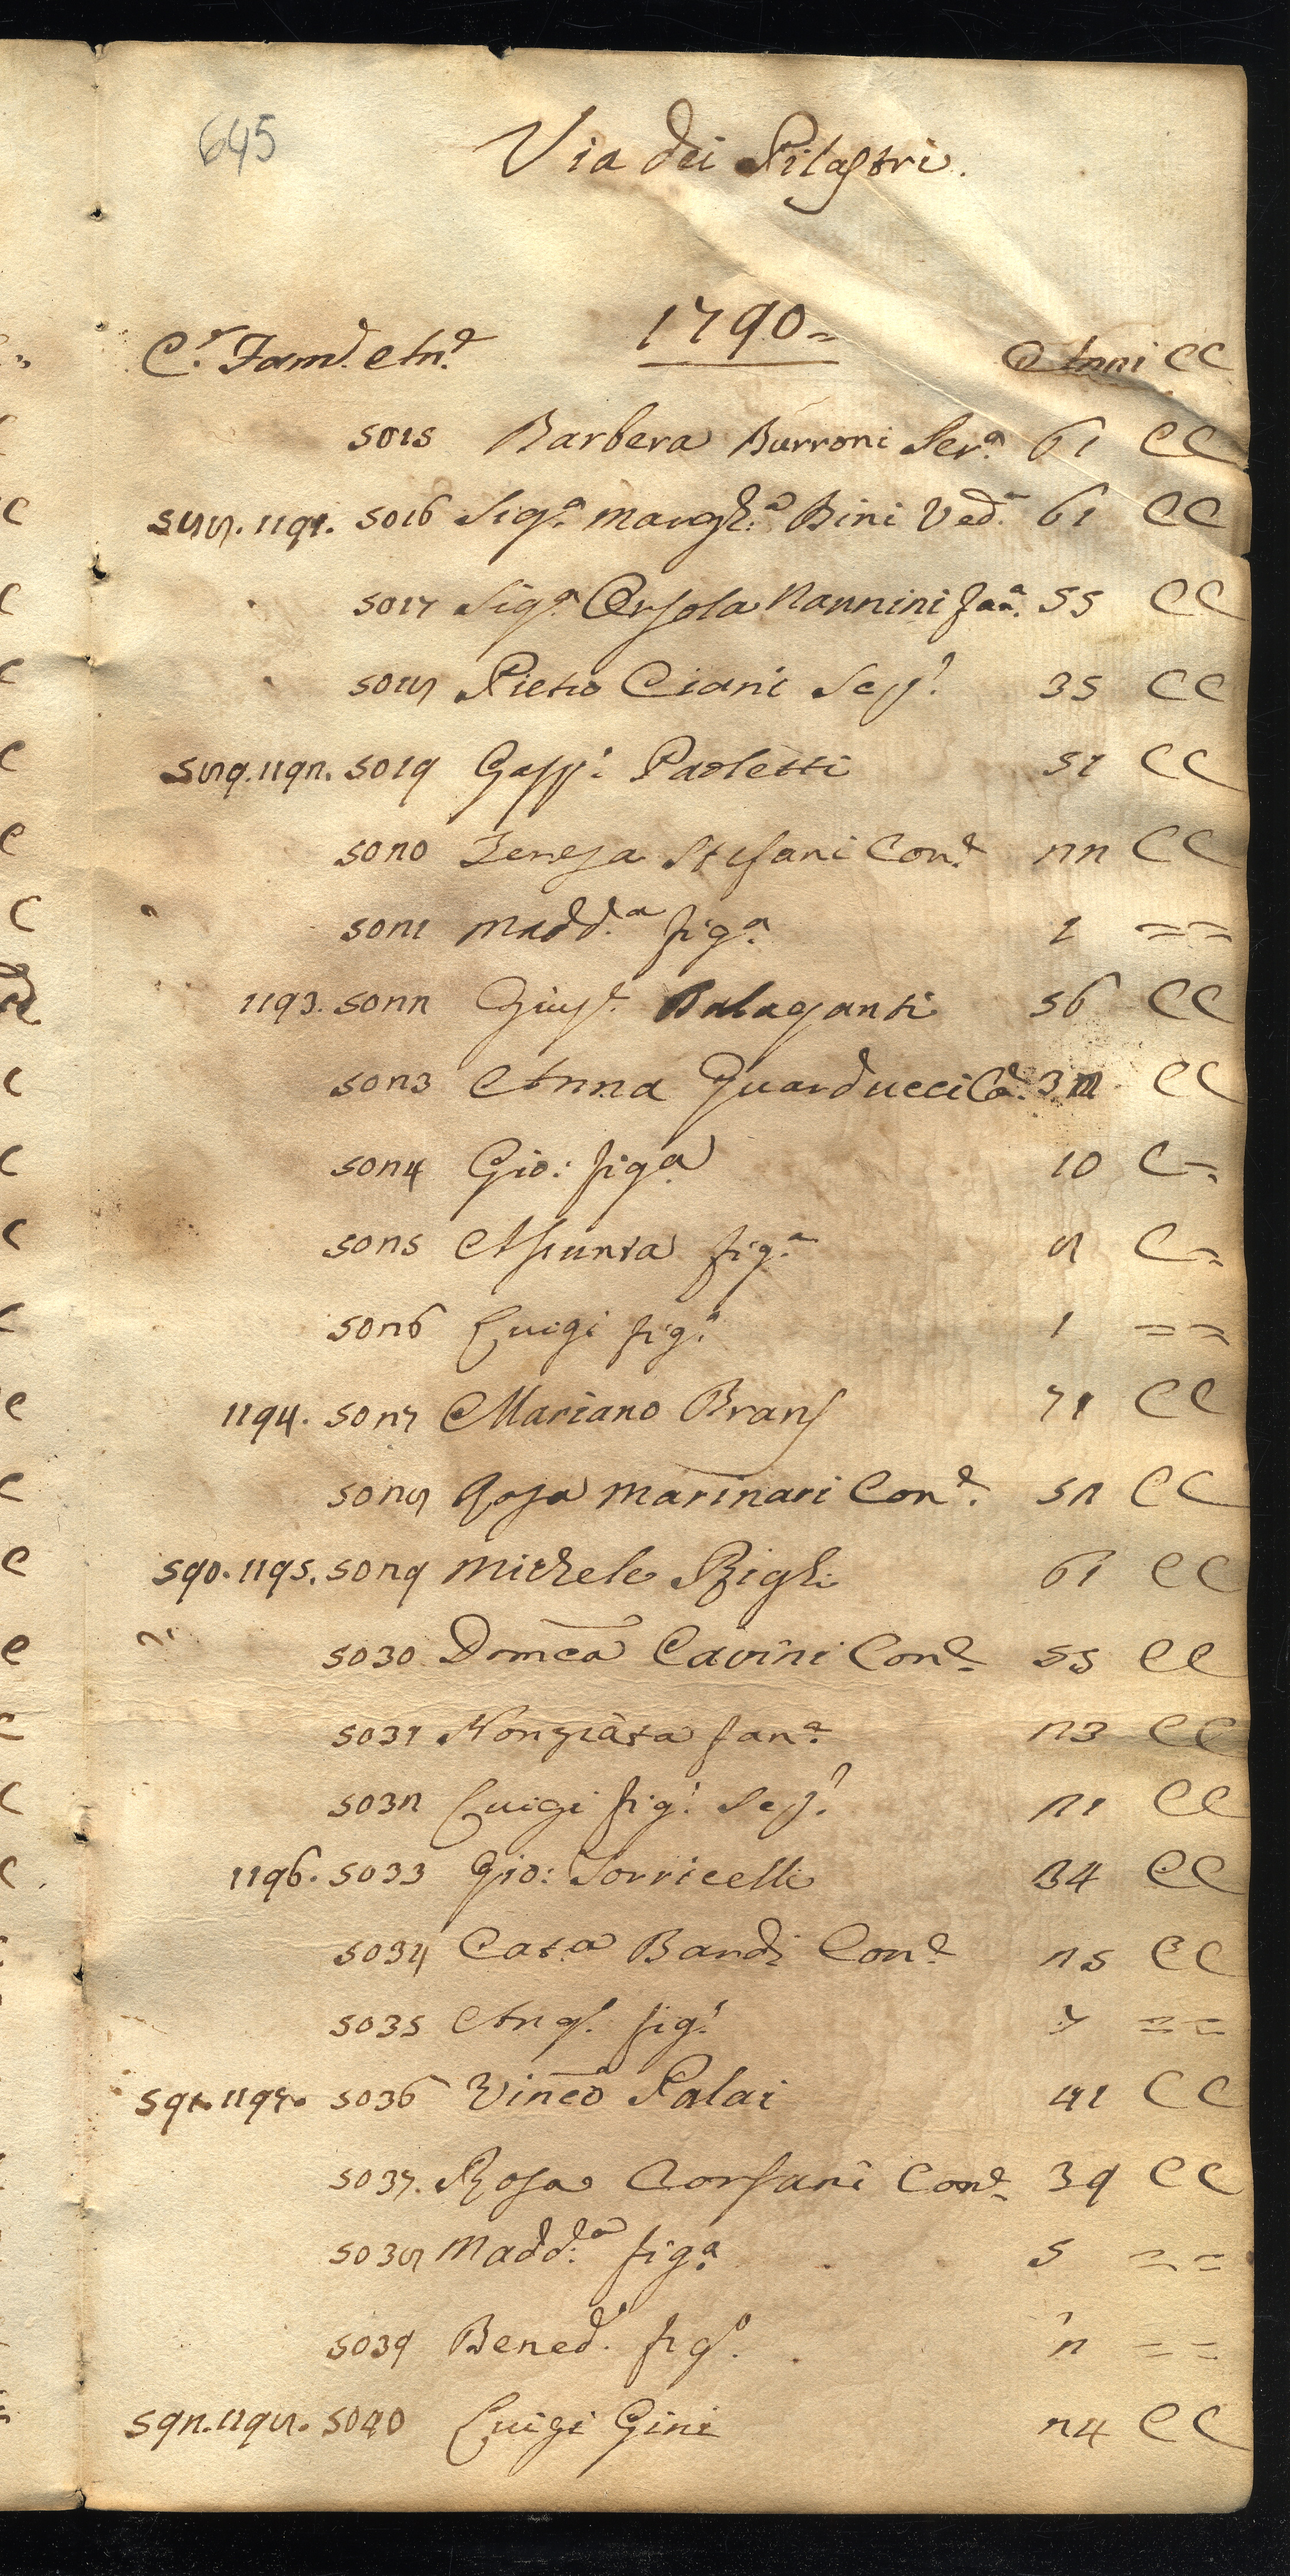 645
Via dei Pilastri.
1790=
C.e Fam.e An.e Anni CC
5015 Barbera Burroni Ser.a 61 CC
588. 1191. 5016 Sig.a Margh.a Bini Ved.a 61 CC
5017 Sig.a Orsola Nannini fan.a 55 CC
5018 Pietro Ciani Ser.e 35 CC
589. 1192. 5019 Gasp.i Paoletti 51 CC
5020 Teresa Stefani Con.e 22 CC
5021 Madd.a fig.a 1 = =
1193. 5022 Gius.e Balaganti 56 CC
5023 Anna Guarducci Co.e CC
5024 Gio: fig.a 10 C=
5025 Assunta fig.a 8 C=
5026 Luigi fig.o 1 = =
1194. 5027 Mariano Brans 71 CC
5028 Rosa Marinari Con.e 52 CC
590. 1195. 5029 Michele Righi 61 CC
5030 Domca Cavini Con.e 55 CC
5031 Nonziata fan.a 23 CC
5032 Luigi fig.o Ser.e 21 CC
1196. 5033 Gio: Torricelli 34 CC
5034 Cat.a Bandi Con.e 25 CC
5035 Ang.o fig.o = =
591. 1197. 5036 Vinco Palai 41 CC
5037. Rosa Corsani Con.e 39 CC
5038 Madd.a fig.a 5 = =
5039 Bened.o fig.o 2 = =
592. 1198. 5040 Luigi Gini 24 CC